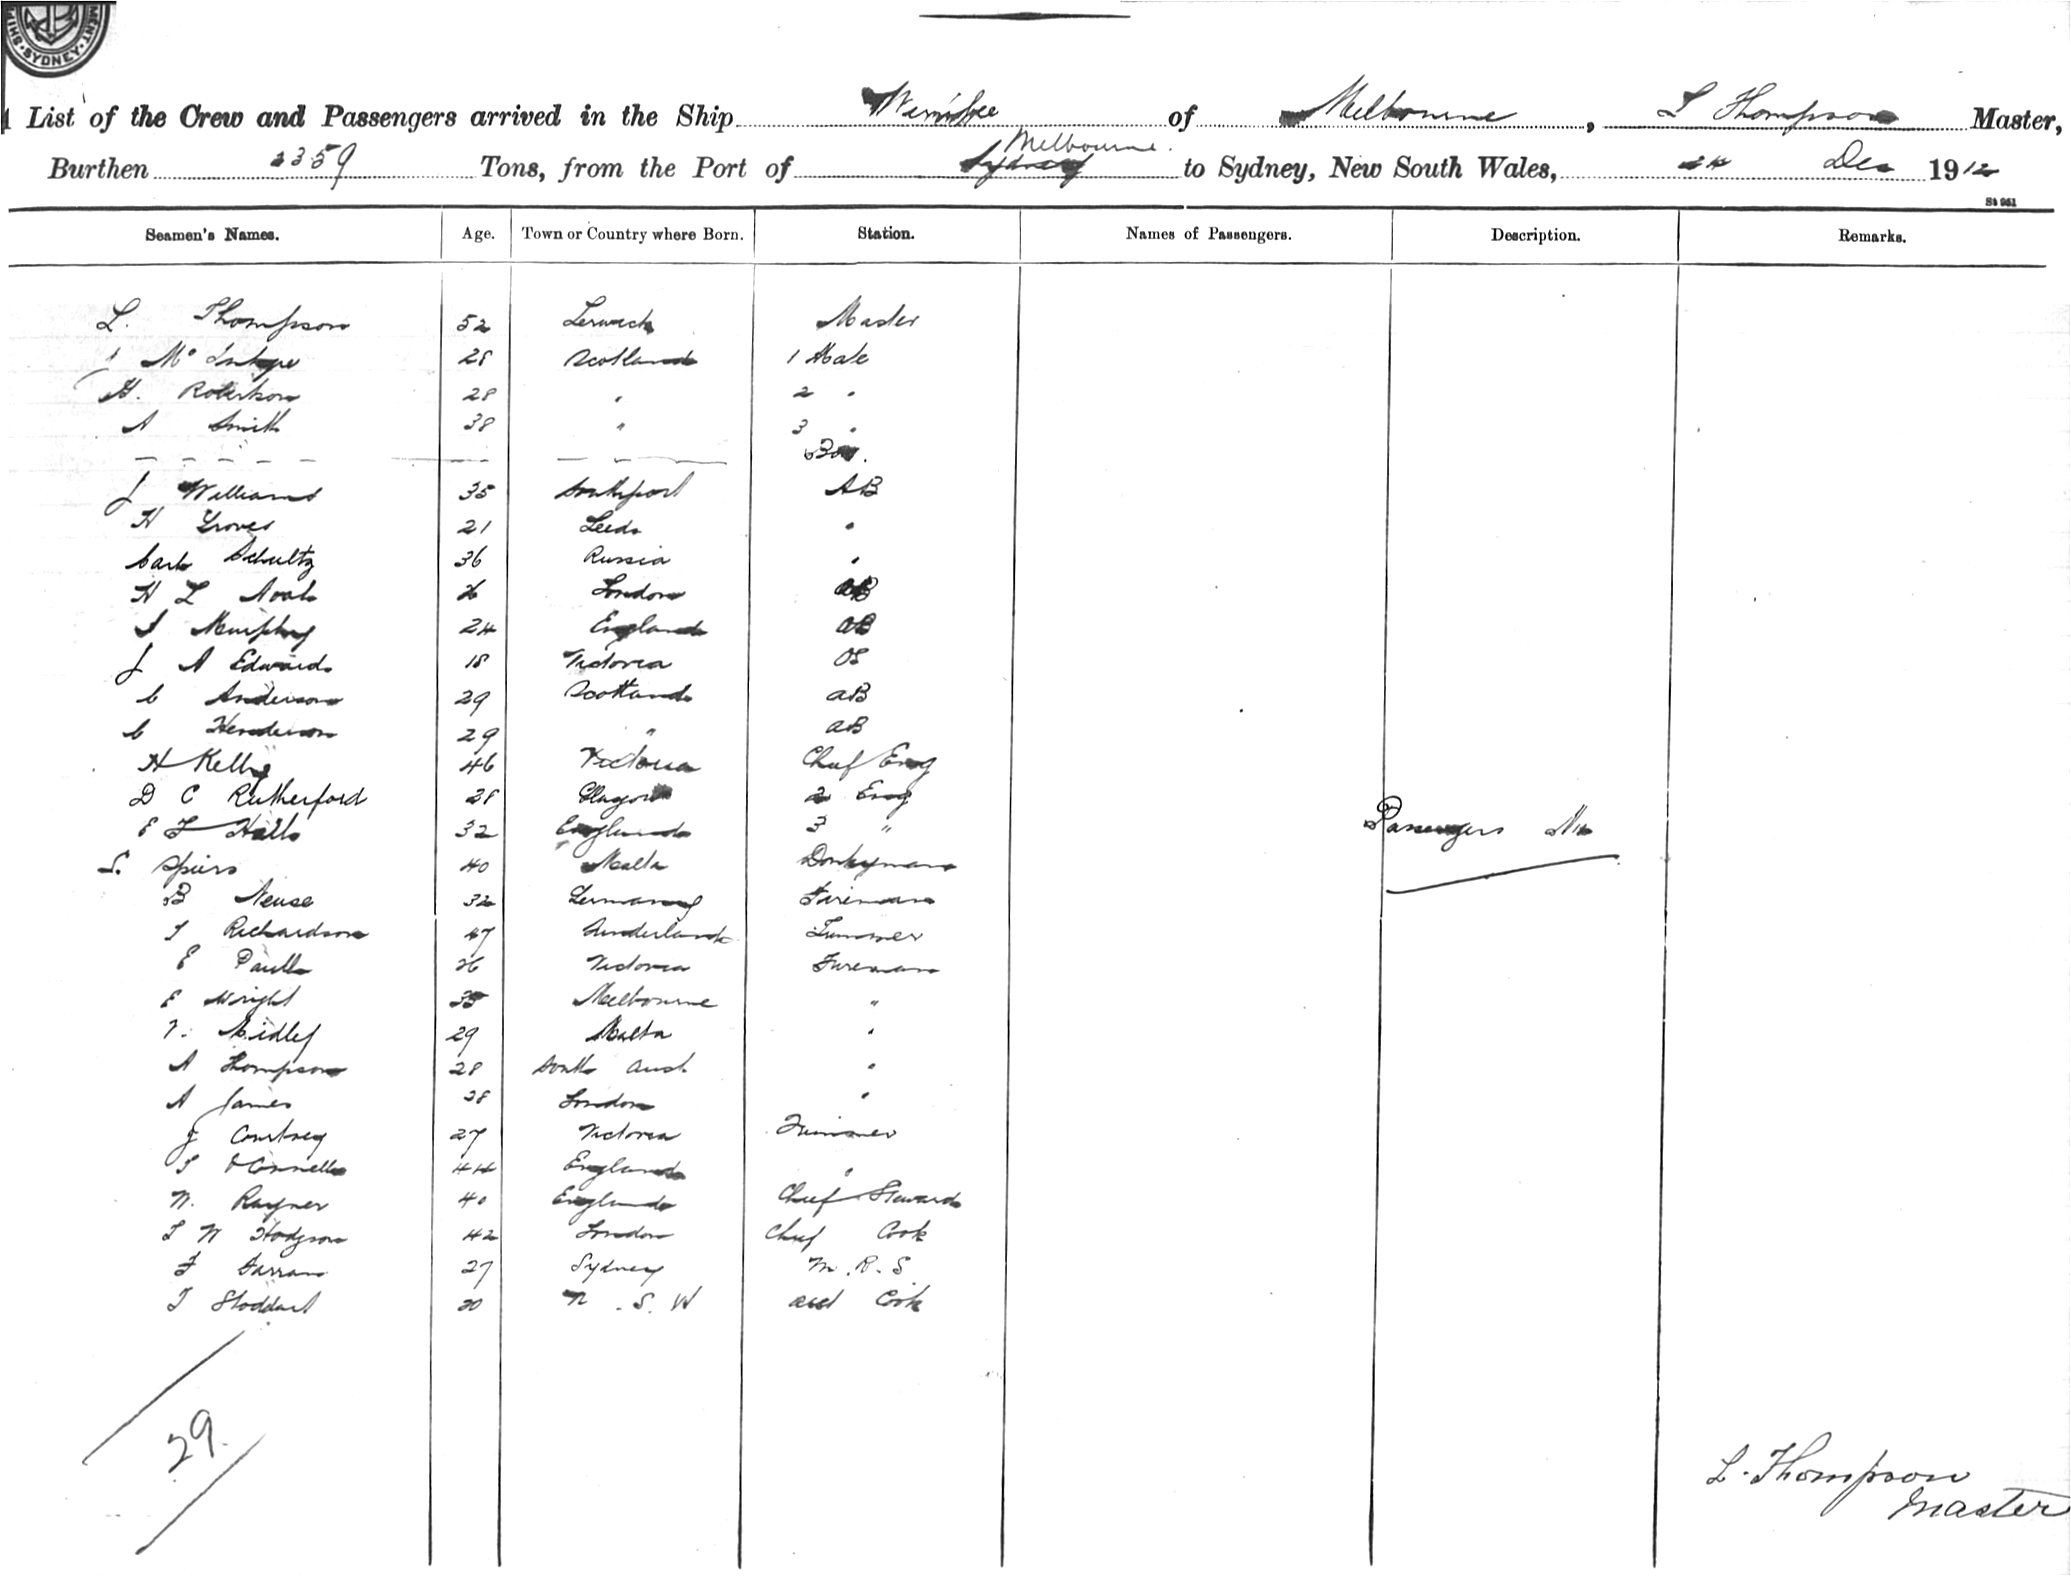 MENT · SYDNEY · SHIP
List of the Crew and Passengers arrived in the Ship Werribee of Melbourne, L Thompson Master,
Melbourne.
Burthen 2359 Tons, from the Port of Sydney to Sydney, New South Wales, 24 Dec 1912
St 961
Seamen's Names. Age. Town or Country where Born. Station. Names of Passengers. Description. Remarks.
L. Thompson 52 Lerwick Master
Mc Intyre 28 Scotland 1 Mate
H. Robertson 28 " 2 "
A Smith 38 " 3 "
J Williams 35 Southport AB
H Groves 21 Leeds "
Carl Schultz 36 Russia "
H L 26 London AB
Murphy 24 England AB
J A Edwards 18 Victoria OS
C Anderson 29 Scotland AB
C Henderson 29 " AB
H Kelly 46 Victoria Chief Eng
D C Rutherford 28 Glasgow 2 Eng
E F Halls 32 England 3 "
Passengers Nil
S. Spiers 40 Malta Donkeyman
B Neuse 32 Germany Fireman
T Richardson 47 Sunderland Trimmer
E Paull 26 Victoria Fireman
E Wright 35 Melbourne "
Midley 29 Malta "
A Thompson 28 South Aust. "
A James 28 London "
J Courtney 27 Victoria Trimmer
T O'Connell 44 England "
W. Rayner 40 England Chief Steward
T W Hodgson 42 London Chief Cook
F Farran 27 Sydney M.R.S.
T Stoddart 20 N.S.W Asst Cook
29.
L. Thompson
Master